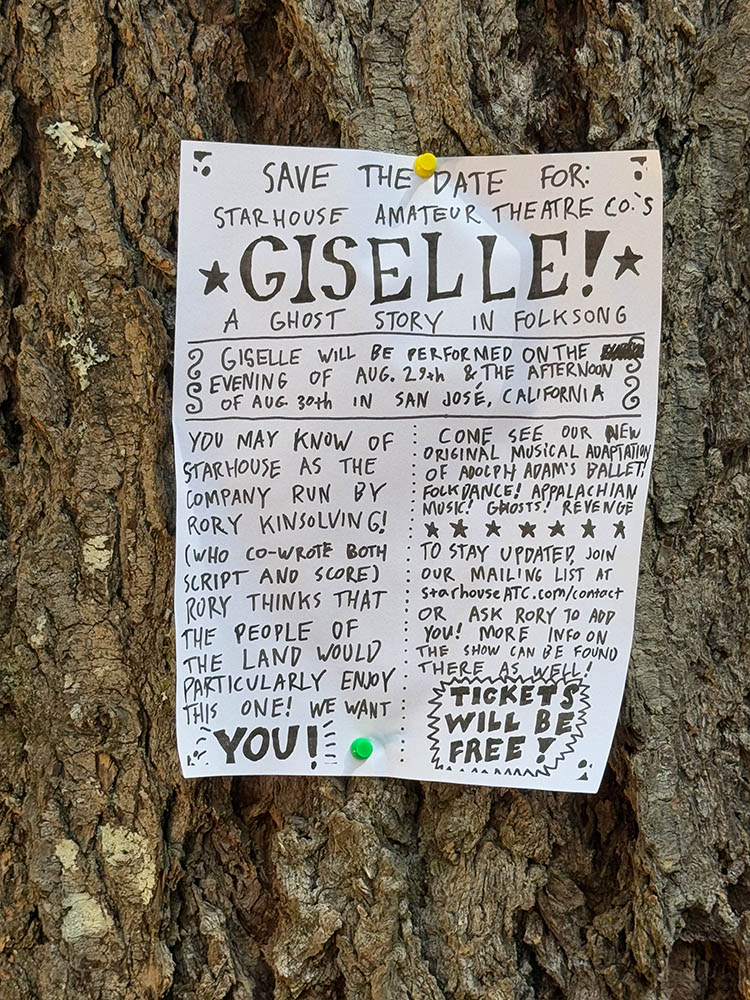 SAVE THE DATE FOR:
STARHOUSE AMATEUR THEATRE CO.'S
★GISELLE!★
A GHOST STORY IN FOLKSONG
GISELLE WILL BE PERFORMED ON THE
EVENING OF AUG. 29th & THE AFTERNOON
OF AUG. 30th IN SAN JOSÉ, CALIFORNIA
YOU MAY KNOW OF
STARHOUSE AS THE
COMPANY RUN BY
RORY KINSOLVING!
(WHO CO-WROTE BOTH
SCRIPT AND SCORE)
RORY THINKS THAT
THE PEOPLE OF
THE LAND WOULD
PARTICULARLY ENJOY
THIS ONE! WE WANT
YOU!
COME SEE OUR NEW
ORIGINAL MUSICAL ADAPTATION
OF ADOLPH ADAM'S BALLET!
FOLKDANCE! APPALACHIAN
MUSIC! GHOSTS! REVENGE
★ ★ ★ ★ ★ ★ ★
TO STAY UPDATED, JOIN
OUR MAILING LIST AT
starhouseATC.com/contact
OR ASK RORY TO ADD
YOU! MORE INFO ON
THE SHOW CAN BE FOUND
THERE AS WELL!
TICKETS
WILL BE
FREE!